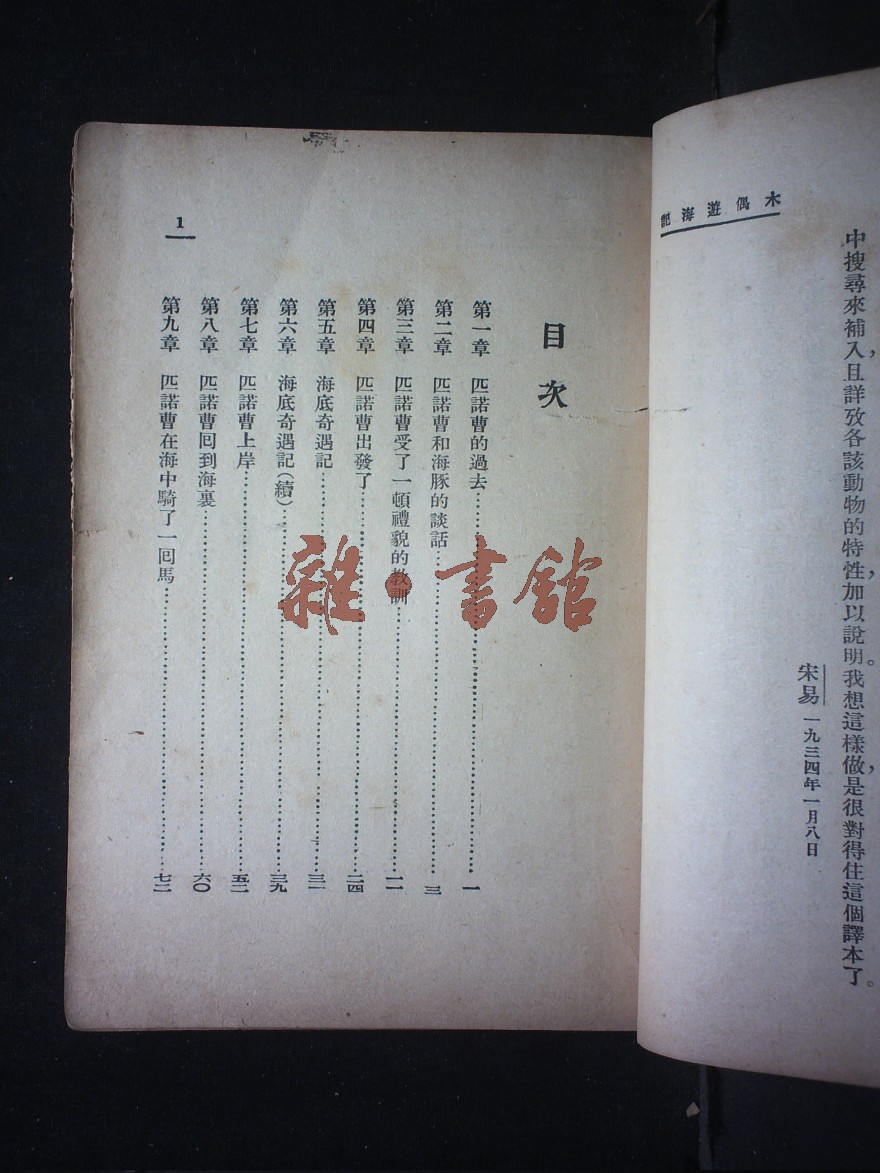 木偶遊海記
中搜尋來補入，且詳攷各該動物的特性，加以說明。我想這樣做，是很對得住這個譯本了。
宋易 一九三四年一月八日
目次
第一章 匹諾曹的過去……一
第二章 匹諾曹和海豚的談話……三
第三章 匹諾曹受了一頓禮貌的教訓……一一
第四章 匹諾曹出發了……二四
第五章 海底奇遇記……三一
第六章 海底奇遇記(續)……三九
第七章 匹諾曹上岸……五二
第八章 匹諾曹回到海裏……六〇
第九章 匹諾曹在海中騎了一回馬……七二
1
雜·書館